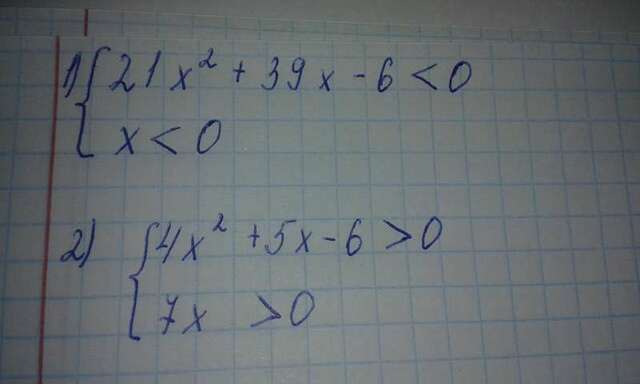 1) { 21x² + 39x - 6 < 0
x < 0
2) { 4x² + 5x - 6 > 0
7x > 0